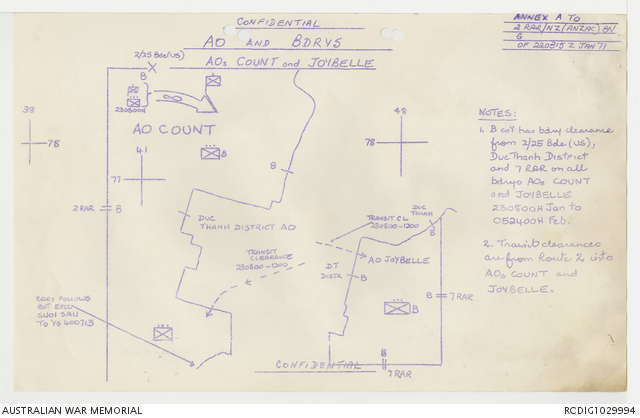 CONFIDENTIAL
ANNEX A TO
2 RAR/NZ (ANZAC) BN
G
OF 220815 Z JAN 71
AO AND BDRYS
AOs COUNT and JOYBELLE
2/25 Bde (US)
B
230500H
AO COUNT
B
39
78
41
77
48
78
B
2 RAR
B
DUC
THANH DISTRICT AO
TRANSIT
CLEARANCE
230800-1200
TRANSIT CL
230800-1200
DUC
THANH
B
AO JOYBELLE
DT
DISTR
B
B
B
7 RAR
BDRY FOLLOWS
BUT EXCL
SUOI SAU
TO YS 400713
B
7 RAR
CONFIDENTIAL
NOTES:
1. B Coy has bdry clearance
from 2/25 Bde (US),
Duc Thanh District
and 7 RAR on all
bdrys AOs COUNT
and JOYBELLE
230800H Jan to
052400H Feb.
2. Transit clearances
are from Route 2 into
AOs COUNT and
JOYBELLE.
AUSTRALIAN WAR MEMORIAL
RCDIG1029994